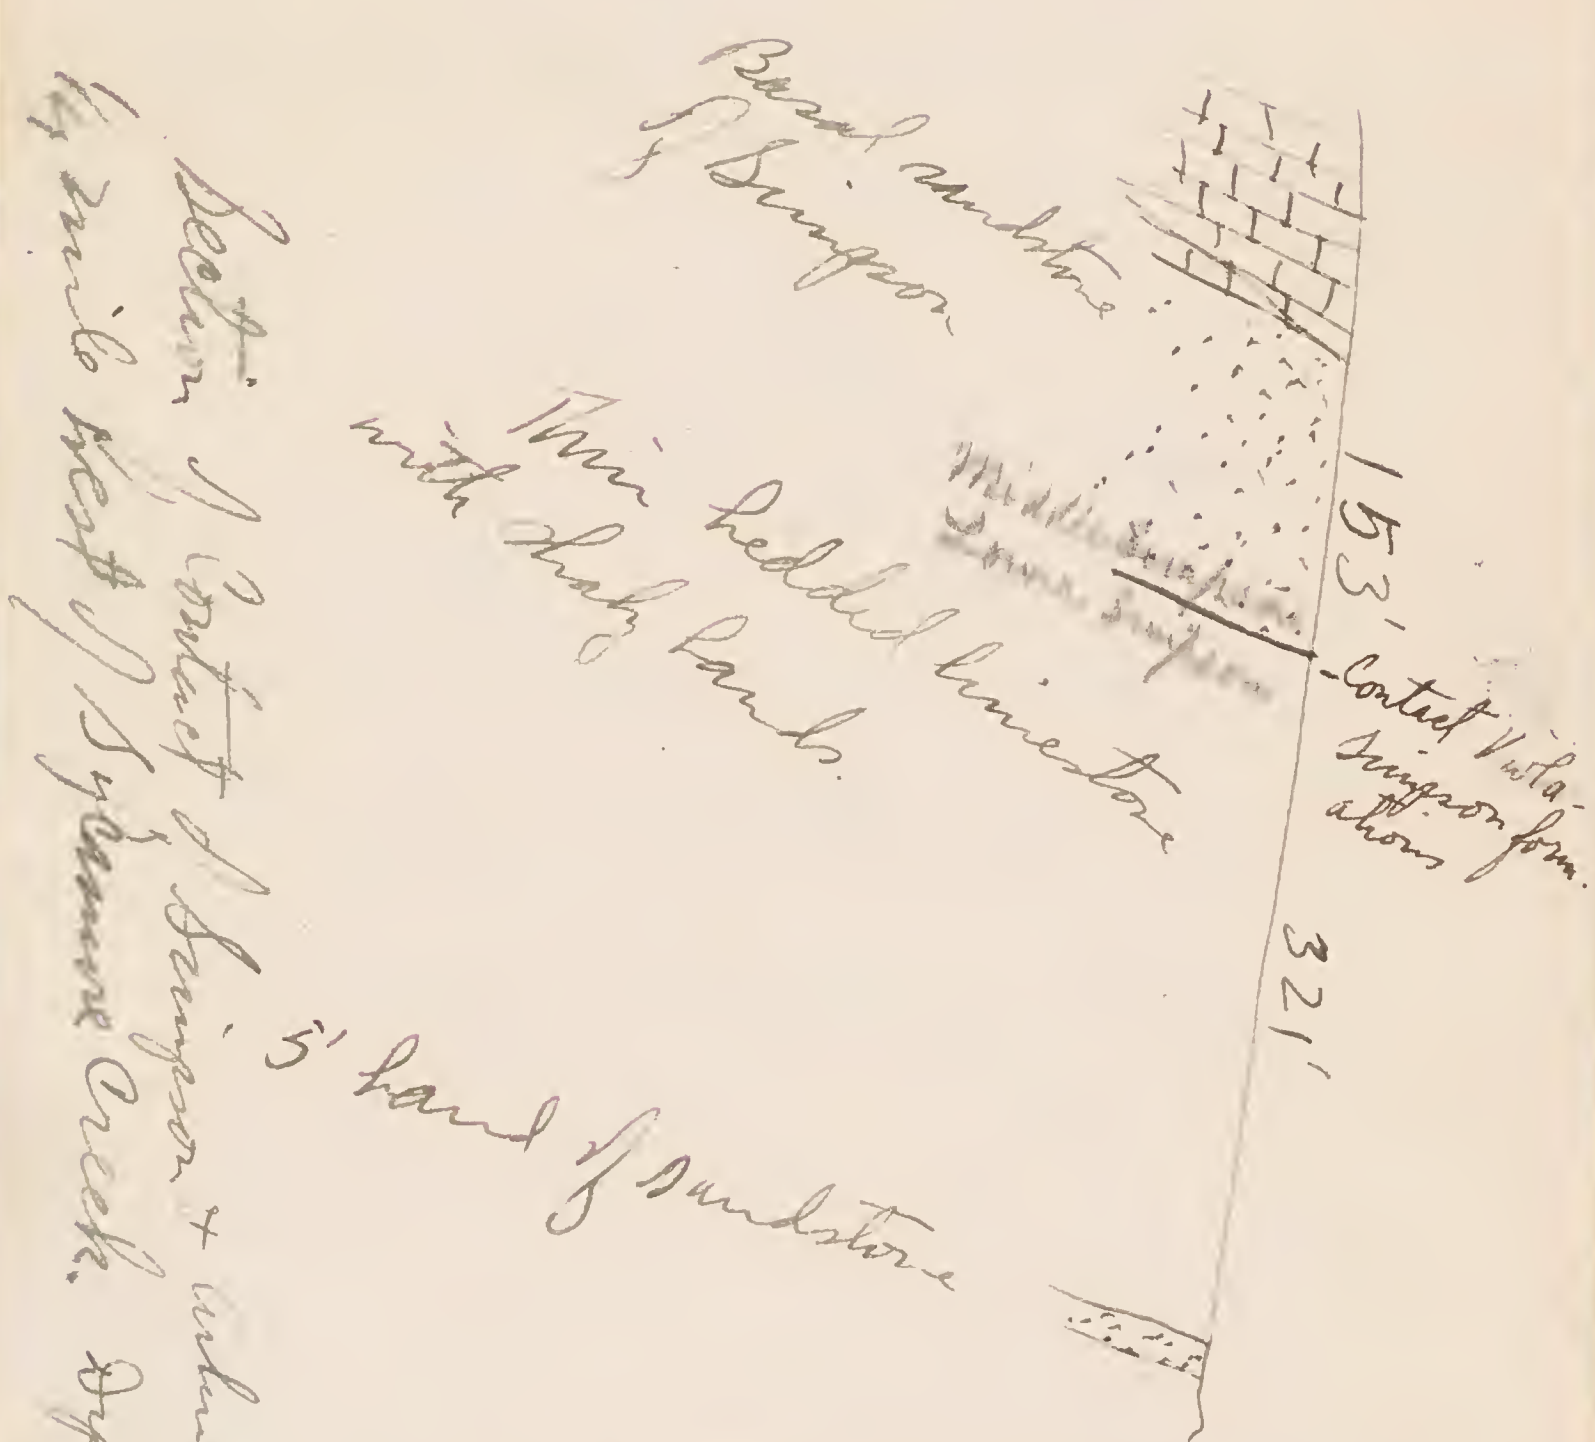 Basal sandstone
of Simpson
153'
Middle Simpson
Lower Simpson
-Contact Viola-
Simpson form.
ations
Thin bedded limestone
with shaly bands.
321'
5' band of sandstone
Section of Contact of Simpson +
mile West of Sycamore Creek.